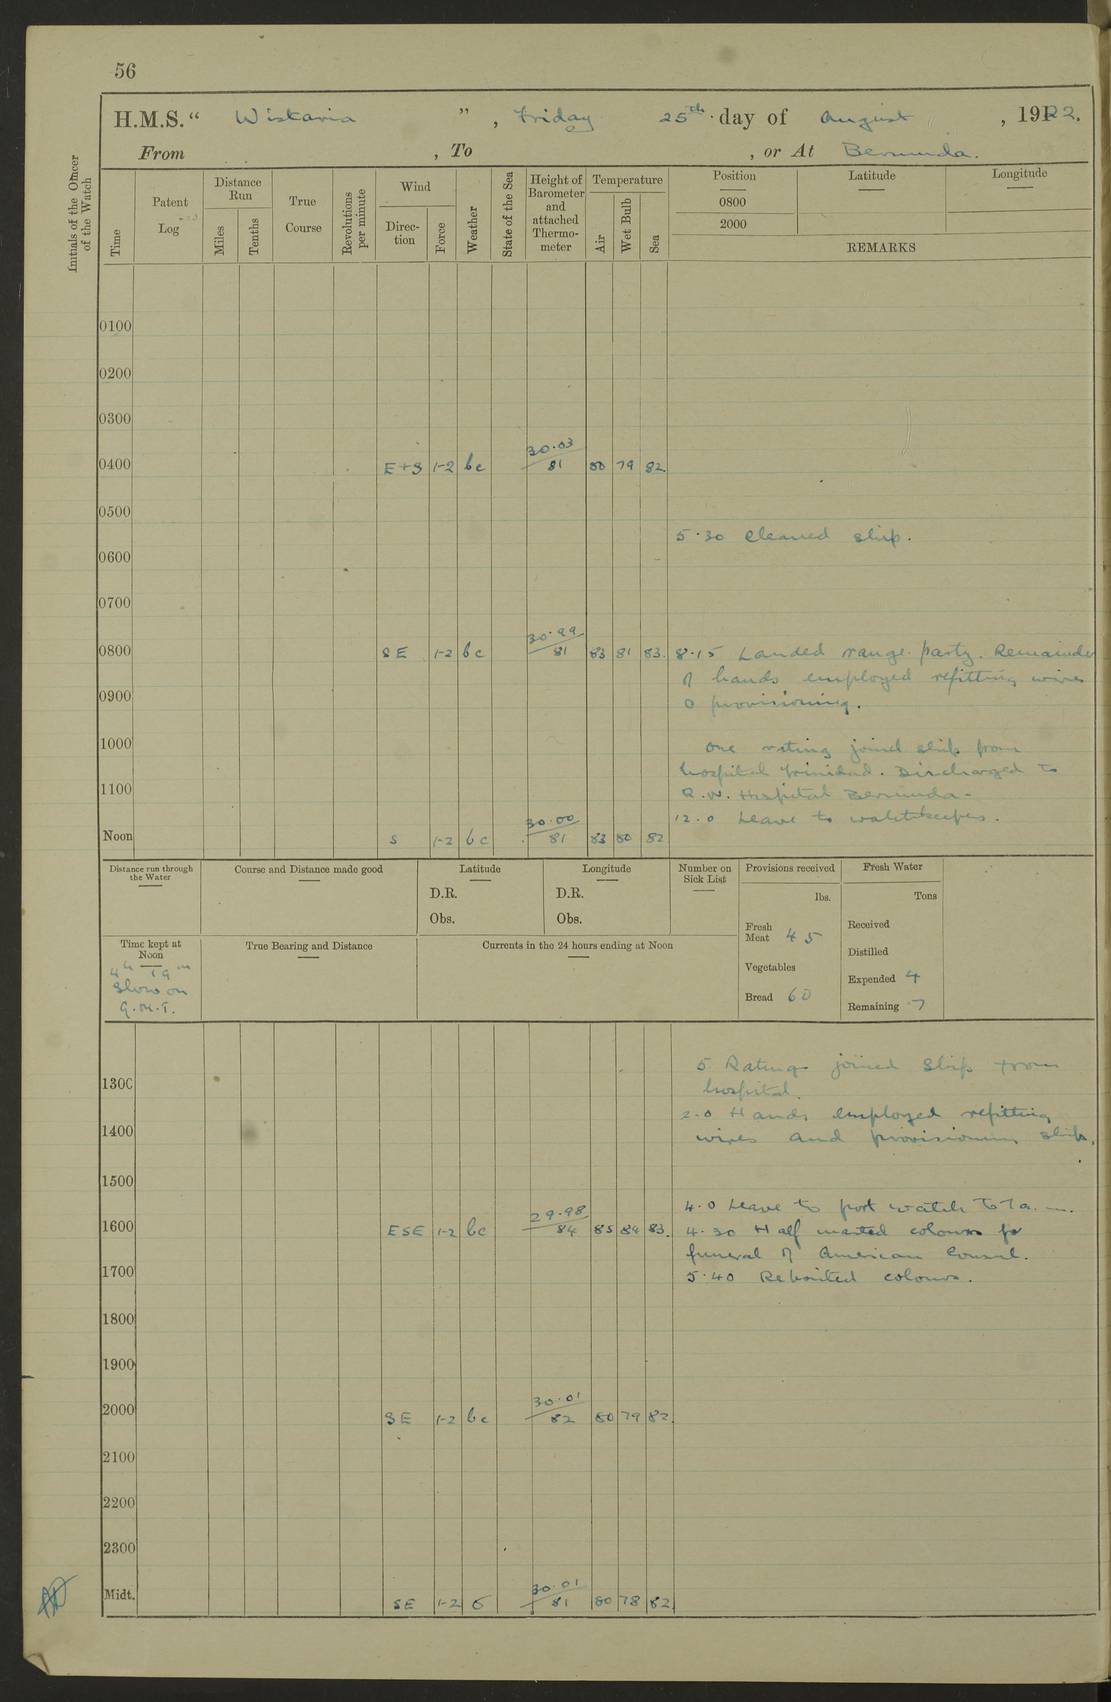 56
H.M.S. “ Wistaria ” , Friday 25th day of August , 1922.
From , To , or At Bermuda.
Initials of the Officer of the Watch
Time
Patent Log
Distance Run
Miles
Tenths
True Course
Revolutions per minute
Wind
Direc- tion
Force
Weather
State of the Sea
Height of Barometer and attached Thermo- meter
Temperature
Air
Wet Bulb
Sea
Position
0800
2000
Latitude
Longitude
REMARKS
0100
0200
0300
0400 E+S 1-2 bc 30.03 81 80 79 82
0500
5.30 Cleaned ship.
0600
0700
0800 SE 1-2 bc 30.99 81 83 81 83. 8.15 Landed range party. Remainder
of hands employed refitting wires
0900
& provisioning.
1000 One rating joined ship from
hospital Trinidad. Discharged to
1100
R.N. Hospital Bermuda.
12.0 Leave to watchkeepers.
Noon S 1-2 bc 30.00 81 83 80 82
Distance run through the Water
Course and Distance made good
Latitude
D.R.
Obs.
Longitude
D.R.
Obs.
Number on Sick List
Provisions received
lbs.
Fresh Meat 45
Vegetables
Bread 60
Fresh Water
Tons
Received
Distilled
Expended 4
Remaining 7
Time kept at Noon
4h 19m
Slow on
G.M.T.
True Bearing and Distance
Currents in the 24 hours ending at Noon
5 Ratings joined ship from
1300
hospital.
2.0 Hands employed refitting
1400
wires and provisioning ship.
1500
4.0 Leave to port watch to 7 a.m.
1600 ESE 1-2 bc 29.98 84 85 84 83. 4.30 Half masted colours for
funeral of American Consul.
1700
5.40 Rehoisted colours.
1800
1900
2000 SE 1-2 bc 30.01 82 80 79 82.
2100
2200
2300
Midt. SE 1-2 c 30.01 81 80 78 82